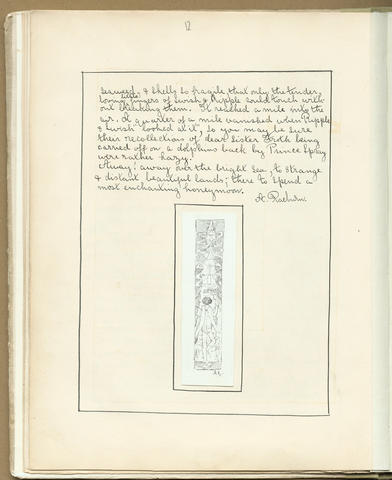 12
seaweed, & shells so fragile, that only the tender,
little
loving fingers of Swish & Ripple could touch with
out breaking them. It reached a mile into the
air. A quarter of a mile vanished when Ripple
& Swish "looked at it", so you may be sure
their recollections of dear Sister Froth being
carried off on a dolphins back by Prince Spray
were rather hazy.
Away! away over the bright sea, to strange
& distant beautiful lands; there to spend a
most enchanting honeymoon.
A. Raeburn